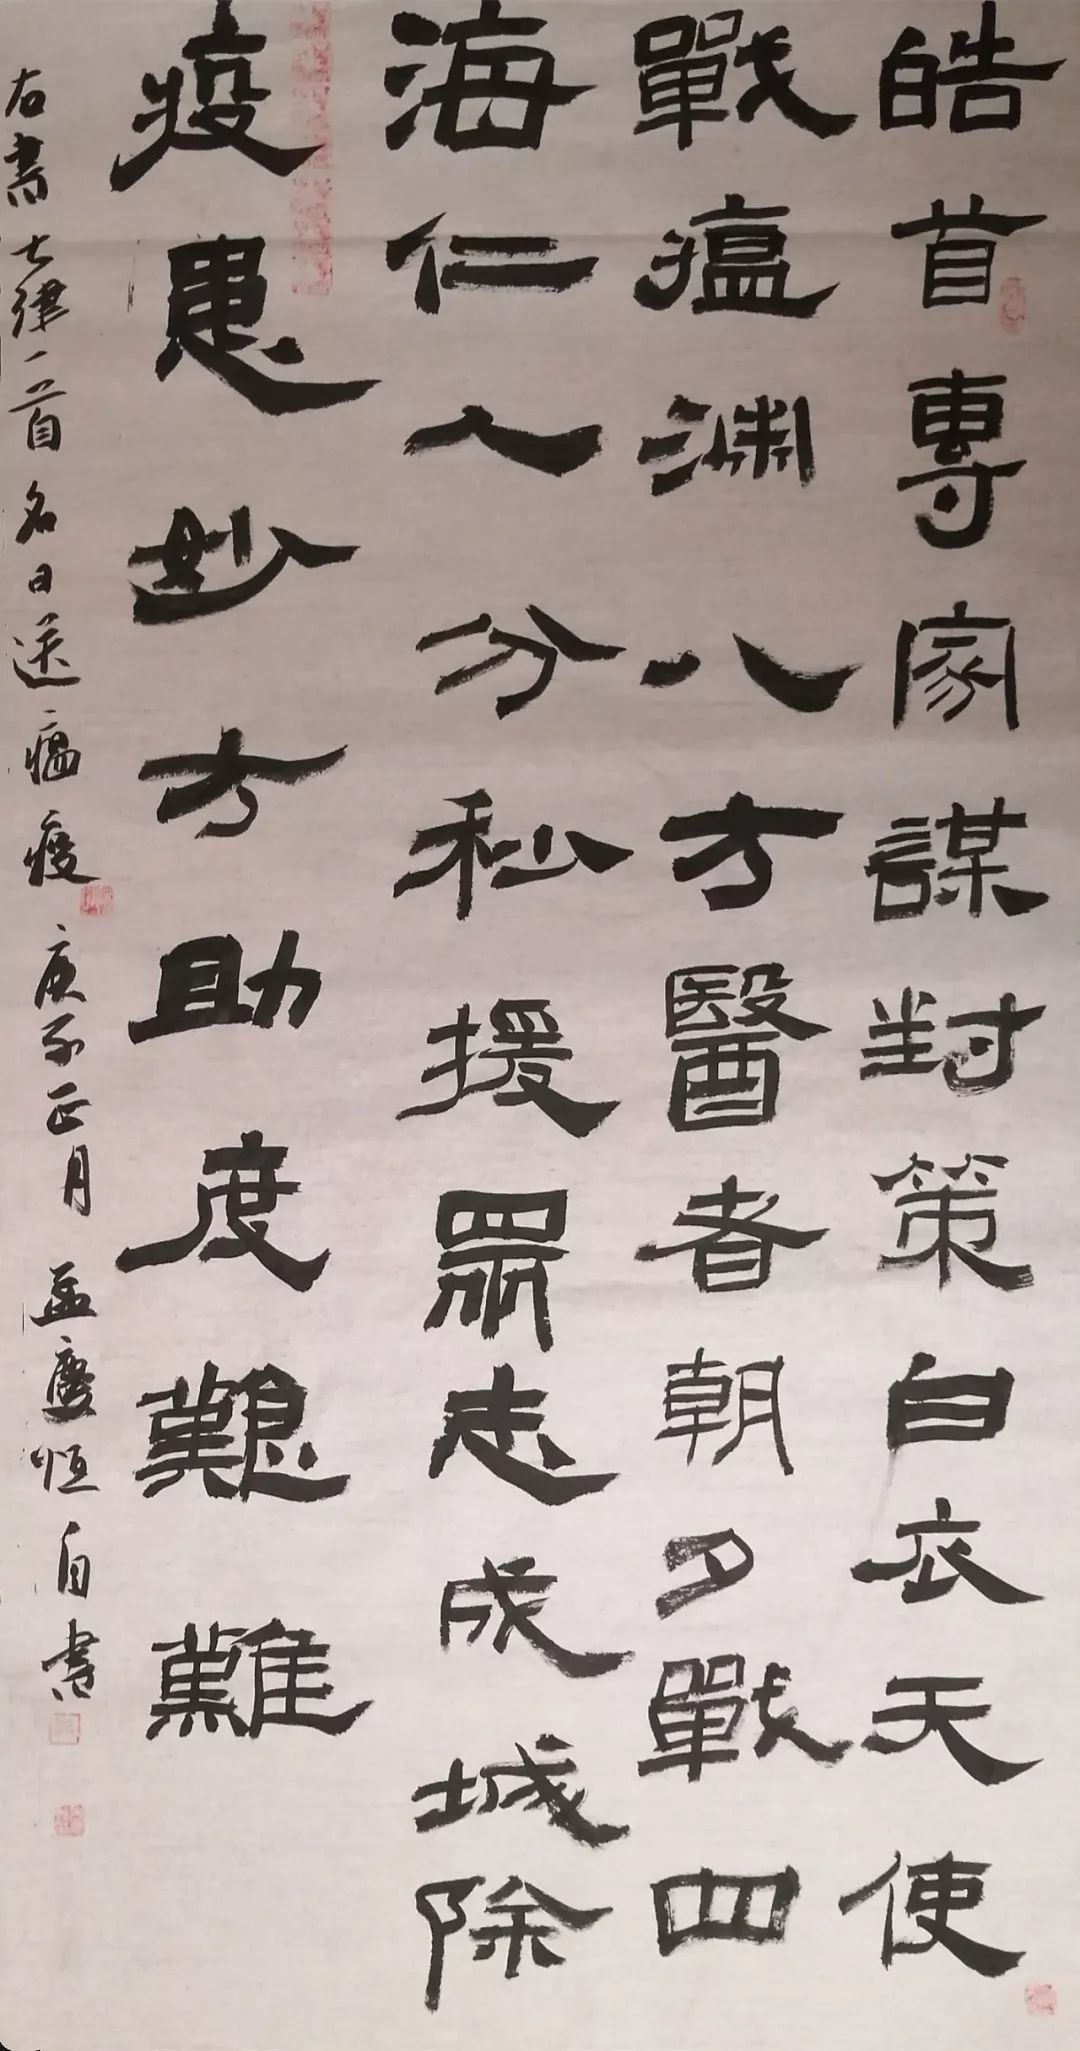 皓首專家謀對策白衣天使
戰瘟淵八方醫者朝夕戰四
海仁人分秒援眾志成城除
疫患妙方助度艱難
右書七律一首名曰送瘟疫庚子正月孟慶恒自書